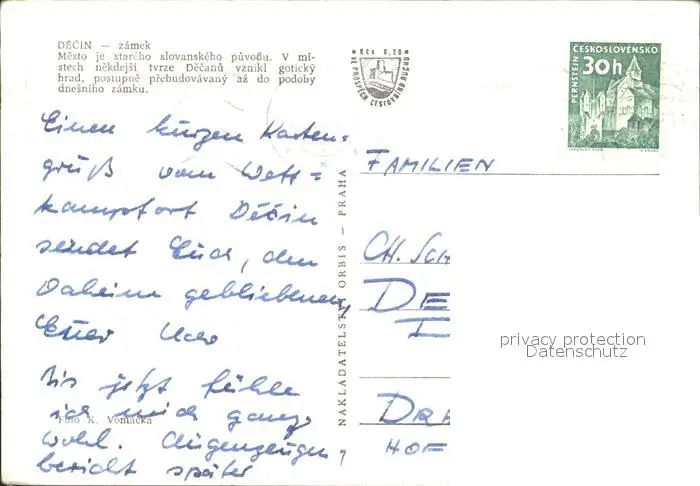 DĚČÍN — zámek
Město je starého slovanského původu. V mí-
stech někdejší tvrze Děčanů vznikl gotický
hrad, postupně přebudovávaný až do podoby
dnešního zámku.
Kčs 0,20
VE PROSPĚCH CESTOVNÍHO RUCHU
ČESKOSLOVENSKO
30h
PERNŠTEJN
Einen kurzen Karten=
gruß vom Wett=
kampfort Děčín
sendet Euch, den
Daheim gebliebenen,
Euer Udo
Bis jetzt fühle
ich mich ganz
wohl. Augenzeugen,
bericht später
Foto K. Vomáčka
NAKLADATELSTVÍ ORBIS — PRAHA
FAMILIEN
CH. SCH
DE
DR
HOF
privacy protection
Datenschutz